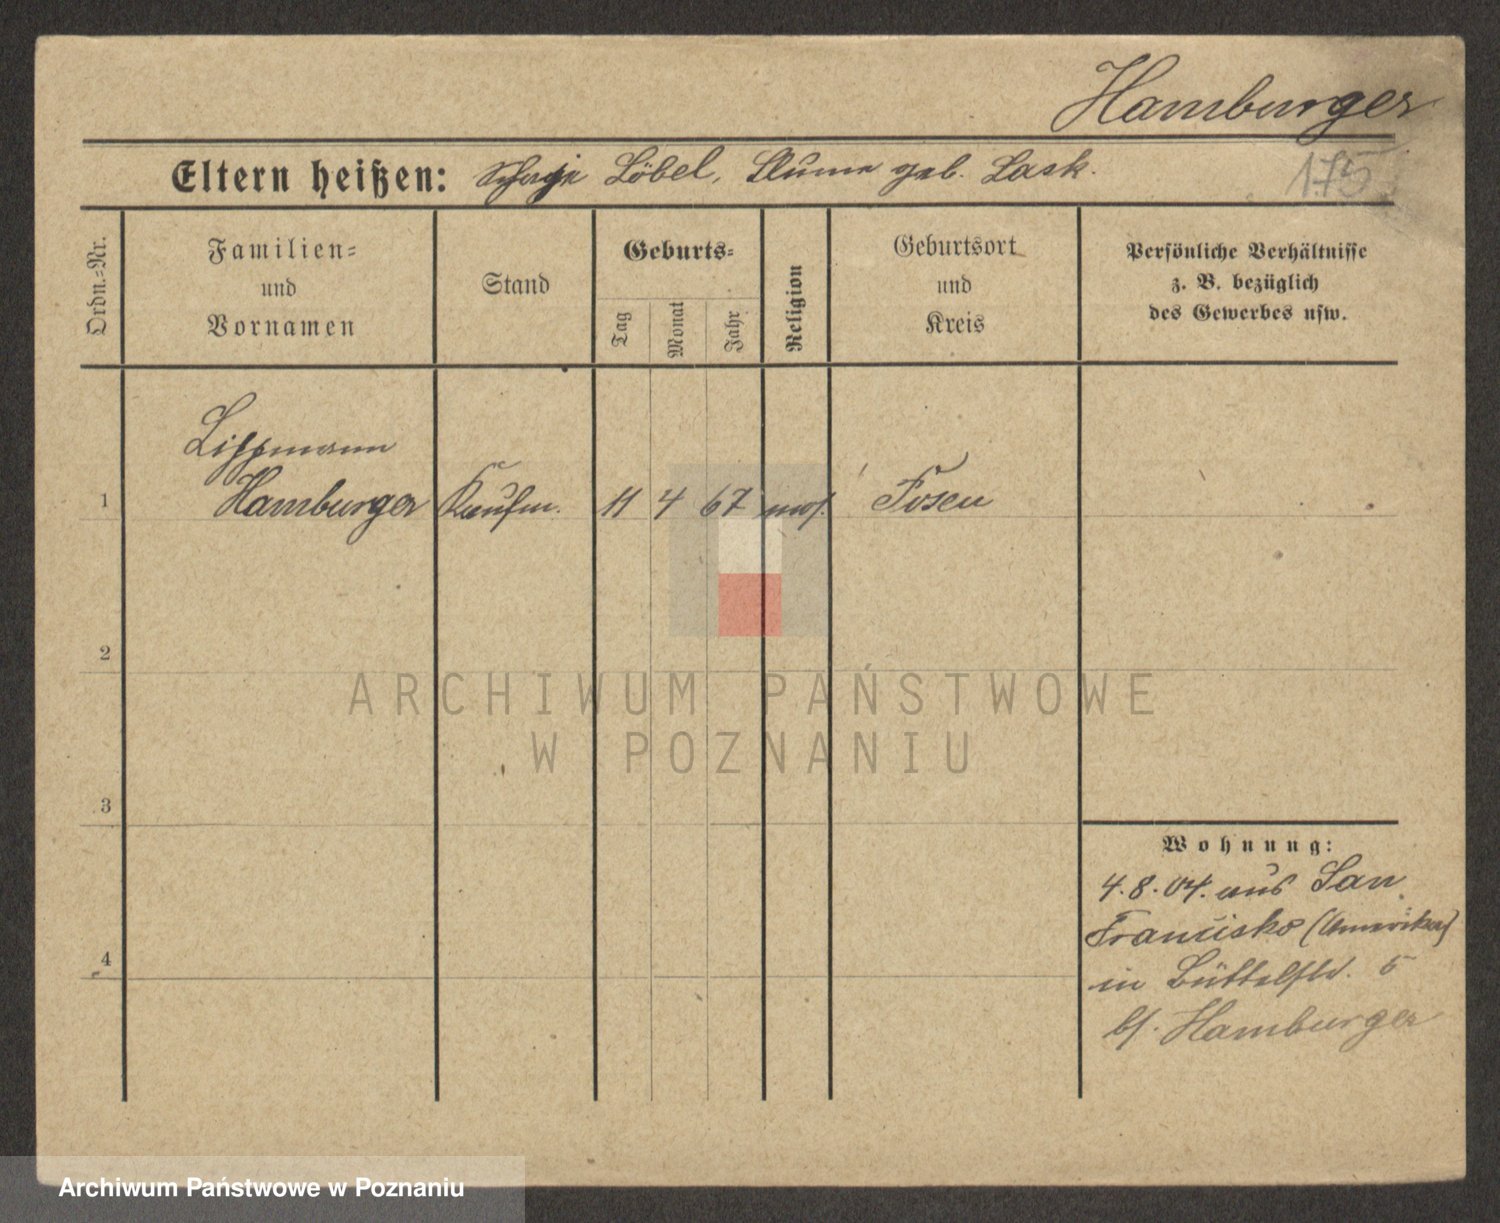 Hamburger
175
Eltern heißen: Schaje Löbel, Blume geb. Lask.
Ordn.=Nr.
Familien=
und
Vornamen
Stand
Geburts=
Tag
Monat
Jahr
Religion
Geburtsort
und
Kreis
Persönliche Verhältnisse
z. B. bezüglich
des Gewerbes usw.
Lippmann
1 Hamburger Kaufm. 11 4 67 mos. Posen
2
3
4
Wohnung:
4.8.04. aus San
Francisko (Amerika)
in Büttelstr. 5
bs. Hamburger
ARCHIWUM PAŃSTWOWE
W POZNANIU
Archiwum Państwowe w Poznaniu